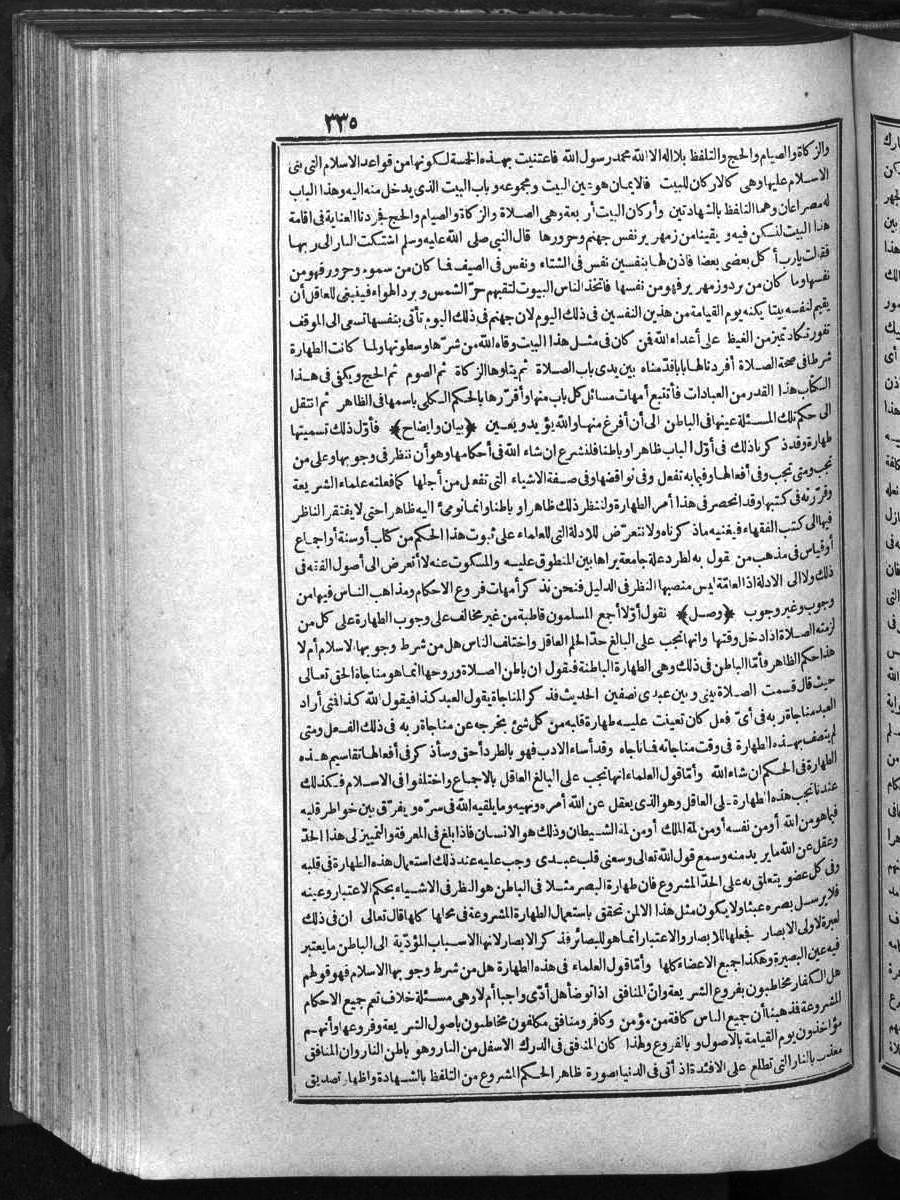 ٣٣٥
والزكاة والصيام والحج والتلفظ بلا اله الا الله محمد رسول الله فاعتنيت بهذه الخمسة لكونها من قواعد الاسلام التي بني
الاسلام عليها وهي كالاركان للبيت فالايمان هو عين البيت ومجموعه وباب البيت الذي يدخل منه اليه وهذا الباب
له مصراعان وهما التلفظ بالشهادتين وأركان البيت أربعة وهي الصلاة والزكاة والصيام والحج فجردنا العناية في اقامة
هذا البيت لنسكن فيه ويقينا من زمهرير نفس جهنم وحرورها قال النبي صلى الله عليه وسلم اشتكت النار الى ربها
فقالت يارب أكل بعضي بعضا فاذن لها بنفسين نفس في الشتاء ونفس في الصيف فما كان من سموم وحرور فهو من
نفسها وما كان من برد وزمهرير فهو من نفسها فاتخذ الناس البيوت لتقيهم حرّ الشمس وبرد الهواء فينبغي للعاقل أن
يقيم لنفسه بيتا يكنه يوم القيامة من هذين النفسين في ذلك اليوم لان جهنم في ذلك اليوم تأتي بنفسها تسعى الى الموقف
تفور تكاد تميز من الغيظ على أعداء الله فمن كان في مثل هذا البيت وقاه الله من شرّها وسطوتها ولما كانت الطهارة
شرطا في صحة الصلاة أفردنا لها بابا قدّمناه بين يدي باب الصلاة ثم يتلوها الزكاة ثم الصوم ثم الحج ويكفي في هذا
الكتاب هذا القدر من العبادات فأتتبع أمهات مسائل كل باب منها وأقرّرها بالحكم الكلي باسمها في الظاهر ثم انتقل
الى حكم تلك المسئلة عينها في الباطن الى أن أفرغ منها والله يؤيد ويعين ﴿بيان وايضاح﴾ فأوّل ذلك تسميتها
طهارة وقد ذكرنا ذلك في أوّل الباب ظاهرا وباطنا فلنشرع ان شاء الله في أحكامها وهو أن ننظر في وجوبها وعلى من
تجب ومتى تجب وفي أفعالها وفيما به تفعل وفي نواقضها وفي صفة الاشياء التي تفعل من أجلها كما فعلته علماء الشريعة
وقرّرته في كتبها وقد انحصر في هذا أمر الطهارة ولننظر ذلك ظاهرا وباطنا وانما نومئ اليه ظاهرا حتى لا يفتقر الناظر
فيها الى كتب الفقهاء فيغنيه ما ذكرناه ولا نتعرّض للادلة التي للعلماء على ثبوت هذا الحكم من كتاب أو سنة أو اجماع
أو قياس في مذهب من يقول به لطرد علة جامعة يراها بين المنطوق عليه والمسكوت عنه لا أتعرض الى أصول الفقه في
ذلك ولا الى الادلة اذ العامّة ليس منصبها النظر في الدليل فنحن نذكر أمهات فروع الاحكام ومذاهب الناس فيها من
وجوب وغير وجوب ﴿وصل﴾ نقول أوّلا أجمع المسلمون قاطبة من غير مخالف على وجوب الطهارة على كل من
لزمته الصلاة اذا دخل وقتها وانها تجب على البالغ حدّ الحلم العاقل واختلف الناس هل من شرط وجوبها الاسلام أم لا
هذا حكم الظاهر فأمّا الباطن في ذلك وهي الطهارة الباطنة فنقول ان باطن الصلاة وروحها انما هو مناجاة الحق تعالى
حيث قال قسمت الصلاة بيني وبين عبدي نصفين الحديث فذكر المناجاة يقول العبد كذا فيقول الله كذا فمتى أراد
العبد مناجاة ربه في أيّ فعل كان تعينت عليه طهارة قلبه من كل شئ يخرجه عن مناجاة ربه في ذلك الفعل ومتى
لم يتصف بهذه الطهارة في وقت مناجاته فما ناجاه وقد أساء الادب فهو بالطرد أحق وسأذكر في أفعالها تقاسيم هذه
الطهارة في الحكم ان شاء الله وأمّا قول العلماء انها تجب على البالغ العاقل بالاجماع واختلفوا في الاسلام فكذلك
عندنا تجب هذه الطهارة على العاقل وهو الذي يعقل عن الله أمره ونهيه وما يلقيه الله في سرّه ويفرّق بين خواطر قلبه
فيما هو من الله أو من نفسه أو من لمة الملك أو من لمة الشيطان وذلك هو الانسان فاذا بلغ في المعرفة والتمييز الى هذا الحدّ
وعقل عن الله ما يريد منه وسمع قول الله تعالى وسعني قلب عبدي وجب عليه عند ذلك استعمال هذه الطهارة في قلبه
وفي كل عضو يتعلق به على الحدّ المشروع فان طهارة البصر مثلا في الباطن هو النظر في الاشياء بحكم الاعتبار وعينه
فلا يرسل بصره عبثا ولا يكون مثل هذا الا لمن تحقق باستعمال الطهارة المشروعة في محالها كلها قال تعالى ان في ذلك
لعبرة لاولي الابصار فجعلها للابصار والاعتبار انما هو للبصائر فذكر الابصار لانها الاسباب المؤدّية الى الباطن ما يعتبر
فيه عين البصيرة وهكذا جميع الاعضاء كلها وأمّا قول العلماء في هذه الطهارة هل من شرط وجوبها الاسلام فهو قولهم
هل الكفار مخاطبون بفروع الشريعة وانّ المنافق اذا توضأ هل أدّى واجبا أم لا وهي مسئلة خلاف تعم جميع الاحكام
المشروعة فمذهبنا أن جميع الناس كافة من مؤمن وكافر ومنافق مكلفون مخاطبون باصول الشريعة وفروعها وأنهم
مؤاخذون يوم القيامة بالاصول وبالفروع ولهذا كان المنافق في الدرك الاسفل من النار وهو باطن النار وان المنافق
معذب بالنار التي تطلع على الافئدة اذ أتى في الدنيا بصورة ظاهر الحكم المشروع من التلفظ بالشهادة واظهار تصديق